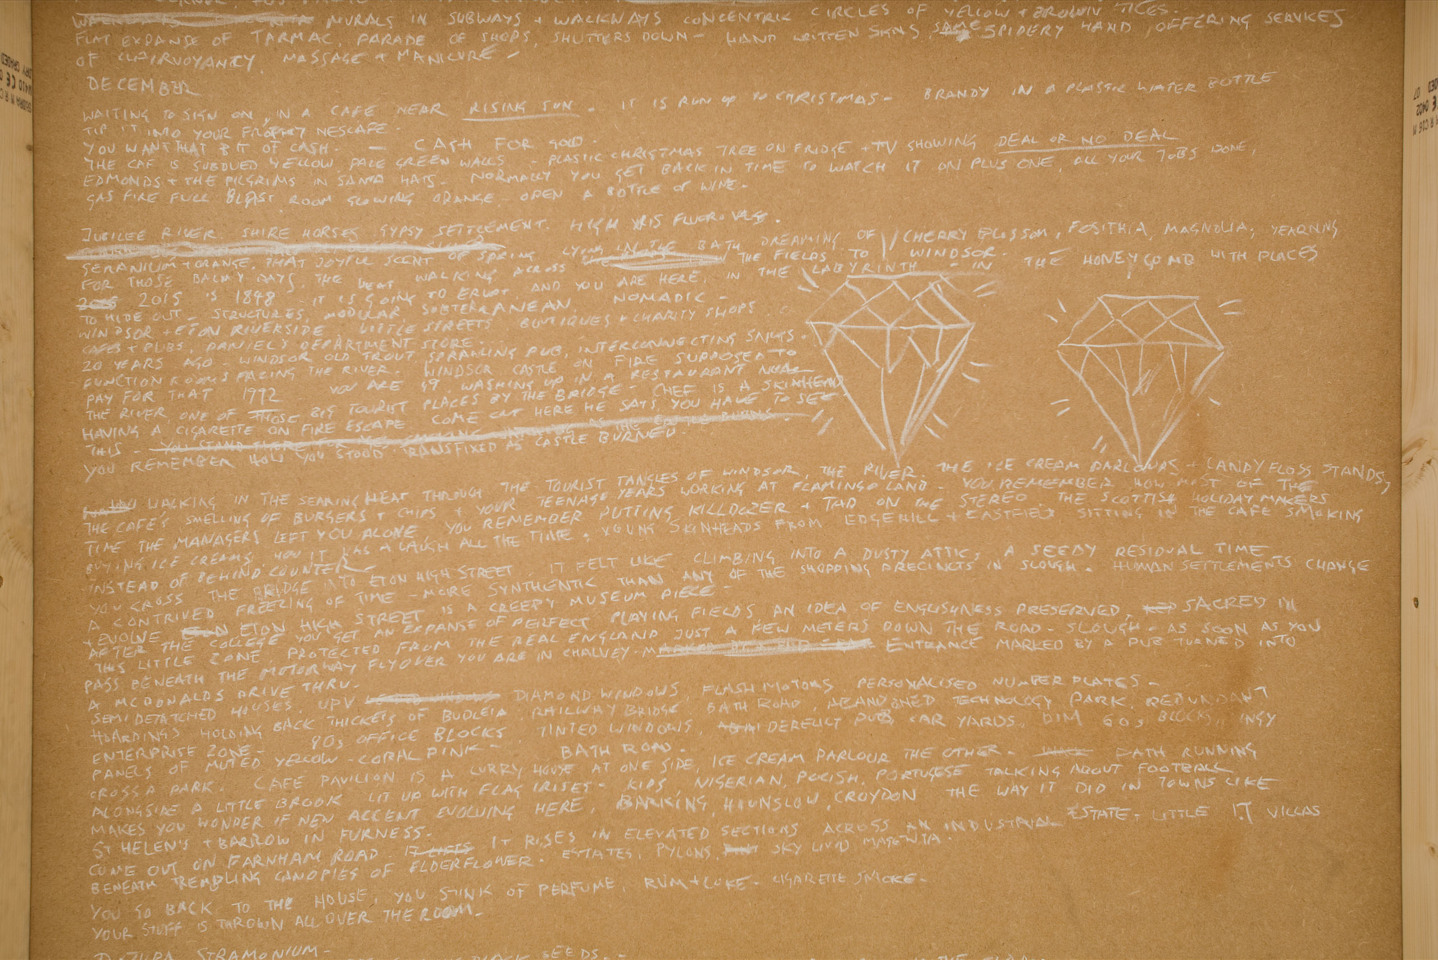 MURALS IN SUBWAYS + WALKWAYS CONCENTRIC CIRCLES OF YELLOW + BROWN TILES.
FLAT EXPANSE OF TARMAC, PARADE OF SHOPS, SHUTTERS DOWN - HAND WRITTEN SIGNS, SPIDERY HAND, OFFERING SERVICES
OF CLAIRVOYANCY, MASSAGE + MANICURE -
DECEMBER
WAITING TO SIGN ON, IN A CAFE NEAR RISING SUN. IT IS RUN UP TO CHRISTMAS - BRANDY IN A PLASTIC WATER BOTTLE
TIP IT INTO YOUR FROTHY NESCAFE.
YOU WANT THAT BIT OF CASH. - CASH FOR GOLD.
THE CAF IS SUBDUED YELLOW, PALE GREEN WALLS - PLASTIC CHRISTMAS TREE ON FRIDGE + TV SHOWING DEAL OR NO DEAL
EDMONDS + THE PILGRIMS IN SANTA HATS. NORMALLY YOU GET BACK IN TIME TO WATCH IT ON PLUS ONE, ALL YOUR JOBS DONE,
GAS FIRE FULL BLAST ROOM GLOWING ORANGE - OPEN A BOTTLE OF WINE.
JUBILEE RIVER, SHIRE HORSES GYPSY SETTLEMENT. HIGH VIS FLUORO
GERANIUM + ORANGE, THAT JOYFUL SCENT OF SPRING LYING IN THE BATH DREAMING OF CHERRY BLOSSOM, FOSITHIA, MAGNOLIA, YEARNING
FOR THOSE BALMY DAYS, THE HEAT WALKING ACROSS THE FIELDS TO WINDSOR - IN THE HONEYCOMB WITH PLACES
2015 IS 1848 IT IS GOING TO ERUPT AND YOU ARE HERE, IN THE LABYRINTH
TO HIDE OUT - STRUCTURES, MODULAR, SUBTERRANEAN, NOMADIC -
WINDSOR + ETON RIVERSIDE LITTLE STREETS BOUTIQUES + CHARITY SHOPS.
CAFES + PUBS, DANIELS DEPARTMENT STORE.
20 YEARS AGO - WINDSOR OLD TROUT SPRAWLING PUB, INTERCONNECTING
FUNCTION ROOMS FACING THE RIVER. WINDSOR CASTLE ON FIRE SUPPOSED TO
PAY FOR THAT 1992 YOU ARE 19, WASHING UP IN A RESTAURANT NEAR
THE RIVER ONE OF THOSE BIG TOURIST PLACES BY THE BRIDGE - CHEF IS A SKINHEAD
HAVING A CIGARETTE ON FIRE ESCAPE COME OUT HERE HE SAYS YOU HAVE TO SEE
THIS -
YOU REMEMBER HOW YOU STOOD TRANSFIXED AS CASTLE BURNED.
WALKING IN THE SEARING HEAT THROUGH THE TOURIST TANGLES OF WINDSOR, THE RIVER. THE ICE CREAM PARLOURS + CANDY FLOSS STANDS,
THE CAFES SMELLING OF BURGERS + CHIPS + YOUR TEENAGE YEARS WORKING AT FLAMINGO LAND - YOU REMEMBER HOW MOST OF THE
TIME THE MANAGERS LEFT YOU ALONE, YOU REMEMBER PUTTING KILLDOZER + TAD ON THE STEREO THE SCOTTISH HOLIDAY MAKERS
BUYING ICE CREAMS, IT WAS A LAUGH ALL THE TIME. YOUNG SKINHEADS FROM EDGEHILL + EASTFIELD SITTING IN THE CAFE SMOKING
INSTEAD OF BEHIND COUNTER
YOU CROSS THE BRIDGE INTO ETON HIGH STREET. IT FELT LIKE CLIMBING INTO A DUSTY ATTIC, A SEEDY RESIDUAL TIME
A CONTRIVED FREEZING OF TIME - MORE SYNTHENTIC THAN ANY OF THE SHOPPING PRECINCTS IN SLOUGH. HUMAN SETTLEMENTS CHANGE
+ EVOLVE ETON HIGH STREET IS A CREEPY MUSEUM PIECE -
AFTER THE COLLEGE YOU GET AN EXPANSE OF PERFECT PLAYING FIELDS AN IDEA OF ENGLISHNESS PRESERVED, SACRED IN
THIS LITTLE ZONE PROTECTED FROM THE REAL ENGLAND JUST A FEW METERS DOWN THE ROAD - SLOUGH - AS SOON AS YOU
PASS BENEATH THE MOTORWAY FLYOVER YOU ARE IN CHALVEY - ENTRANCE MARKED BY A PUB TURNED INTO
A MCDONALDS DRIVE THRU.
SEMI DETATCHED HOUSES, UPV DIAMOND WINDOWS, FLASH MOTORS PERSONALISED NUMBER PLATES -
HOARDINGS HOLDING BACK THICKETS OF BUDLEIA RAILWAY BRIDGE BATH ROAD ABANDONED TECHNOLOGY PARK, REDUNDANT
ENTERPRISE ZONE - 80s OFFICE BLOCKS TINTED WINDOWS, DERELICT PUBS CAR YARDS, DIM 60s BLOCKS
PANELS OF MUTED YELLOW - CORAL PINK - BATH ROAD.
CROSS A PARK. CAFE PAVILION IS A CURRY HOUSE AT ONE SIDE, ICE CREAM PARLOUR THE OTHER - PATH RUNNING
ALONGSIDE A LITTLE BROOK LIT UP WITH FLAG IRISES - KIDS, NIGERIAN, POLISH, PORTUGESE TALKING ABOUT FOOTBALL
MAKES YOU WONDER IF NEW ACCENT EVOLVING HERE, BARKING, HOUNSLOW, CROYDON THE WAY IT DID IN TOWNS LIKE
ST HELEN'S + BARROW IN FURNESS.
COME OUT ON FARNHAM ROAD. IT RISES IN ELEVATED SECTIONS ACROSS AN INDUSTRIAL ESTATE, LITTLE I.T VILLAS
BENEATH TREMBLING CANOPIES OF ELDERFLOWER. ESTATES, PYLONS, SKY LIVID MAGENTA.
YOU GO BACK TO THE HOUSE, YOU STINK OF PERFUME, RUM + COKE - CIGARETTE SMOKE -
YOUR STUFF IS THROWN ALL OVER THE ROOM.
DATURA STRAMONIUM -
BLACK SEEDS. -